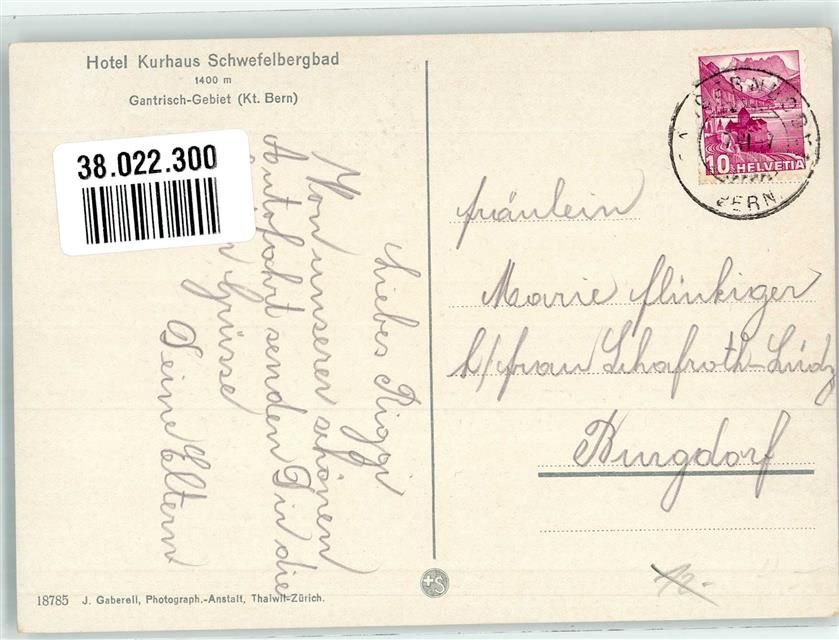 Hotel Kurhaus Schwefelbergbad
1400 m
Gantrisch-Gebiet (Kt. Bern)
38.022.300
Liebes
Von unserer schönen
Autofahrt senden Dir die
Grüsse
Deine Eltern
10 HELVETIA
BERN
fräulein
Marie flückiger
b/frau Schafroth-Lüdz
Burgdorf
+S
12.-
18785 J. Gaberell, Photograph.-Anstalt, Thalwil-Zürich.